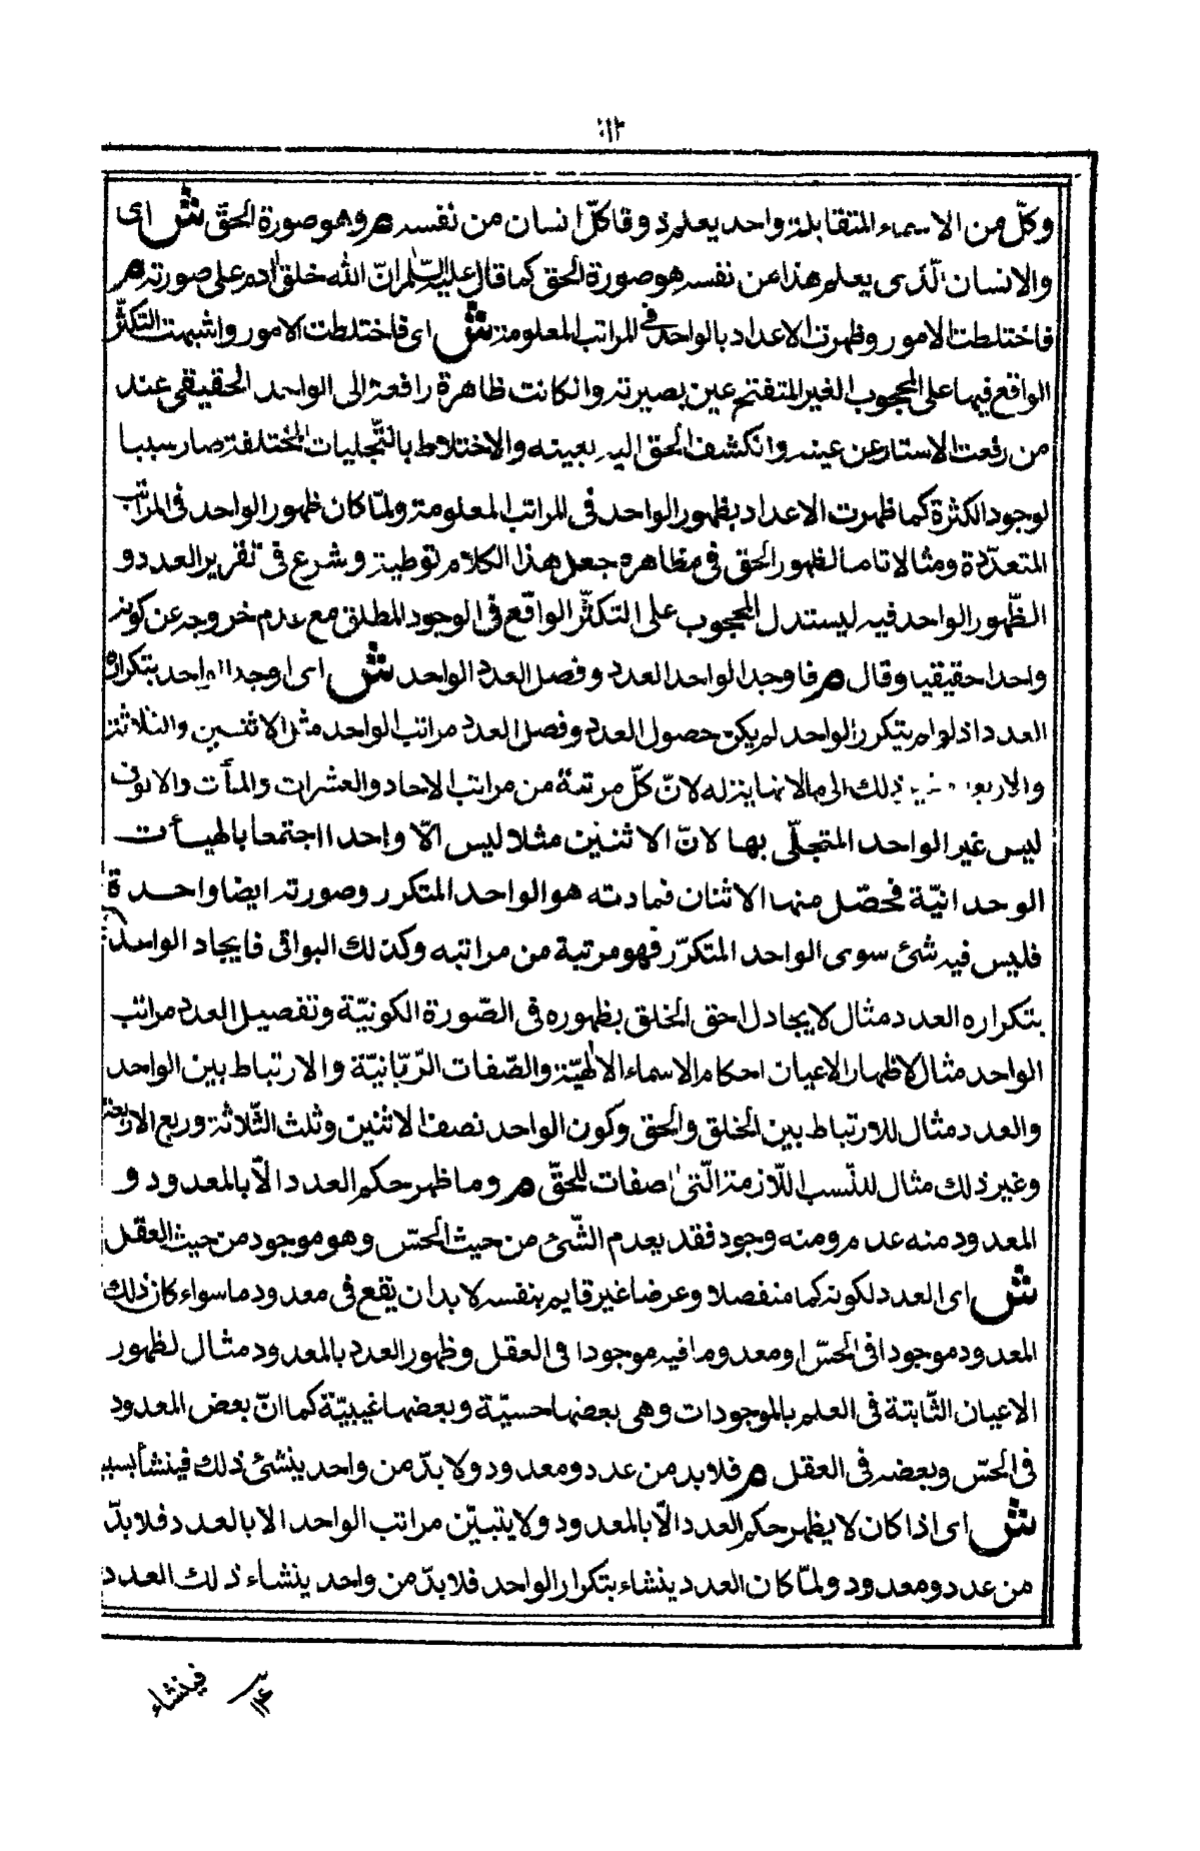 ١١٢
وكلّ من الاسماء المتقابلة واحد يعلم ذوقا كلّ انسان من نفسه م وهو صورة الحقّ ش اى
والانسان الّذى يعلم هذا عن نفسه هو صورة الحق كما قال عليه السّلم انّ الله خلق ادم على صورته م
فاختلطت الامور وظهرت الاعداد بالواحد فى المراتب المعلومة ش اى فاختلطت الامور واشبهت التكثّر
الواقع فيها على المحجوب الغير المتفتح عين بصيرته وانكانت ظاهرة رافعة الى الواحد الحقيقى عند
من رفعت الاستار عن عينه وانكشف الحق اليه بعينه والاختلاط بالتّجليات المختلفة صار سببا
لوجود الكثرة كما ظهرت الاعداد بظهور الواحد فى المراتب المعلومة ولمّا كان ظهور الواحد فى المراتب
المتعدّدة ومثالا تاما لظهور الحق فى مظاهره جعل هذا الكلام توطية وشرع فى تقرير العدد و
الظّهور الواحد فيه ليستدل المحجوب على التكثّر الواقع فى الوجود المطلق مع عدم خروجه عن كونه
واحدا حقيقيا وقال م فاوجد الواحد العدد وفصل العدد الواحد ش اى اوجد الواحد بتكراره
العدد اذ لو لم يتكرر الواحد لم يكن حصول العدد وفصل العدد مراتب الواحد مثل الاثنين والثلاثة
والاربعة ذلك الى مالانهاية له لانّ كلّ مرتبة من مراتب الاحاد والعشرات والمأت والالوف
ليس غير الواحد المتجلّى بها لانّ الاثنين مثلا ليس الّا واحد ااجتمعا بالهيأت
الوحدانيّة فحصّل منها الاثنان فمادته هو الواحد المتكرر وصورته ايضا واحدة
فليس فيه شئ سوى الواحد المتكرّر فهو مرتبة من مراتبه وكذلك البواقى فايجاد الواحد
بتكراره العدد مثال لايجاد الحق الخلق بظهوره فى الصّورة الكونيّة وتفصيل العدد مراتب
الواحد مثال لاظهار الاعيان احكام الاسماء الالهيّة والصّفات الرّبّانيّة والارتباط بين الواحد
والعدد مثال للارتباط بين الخلق والحق وكون الواحد نصف الاثنين وثلث الثّلاثة وربع الاربعة
وغير ذلك مثال للنّسب اللّازمة الّتى صفات للحقّ م وما ظهر حكم العدد الّا بالمعدود و
المعدود منه عدم ومنه وجود فقد يعدم الشّئ من حيث الحسّ وهو موجود من حيث العقل
ش اى العدد لكونه كما منفصلا وعرضا غير قايم بنفسه لا بد ان يقع فى معدود ما سواء كان ذلك
المعدود موجودا فى الحسّ او معدوما فيه موجودا فى العقل وظهور العدد بالمعدود مثال لظهور
الاعيان الثّابتة فى العلم بالموجودات وهى بعضها حسيّة وبعضها غيبيّة كما انّ بعض المعدود
فى الحسّ وبعضه فى العقل م فلا بد من عدد ومعدود ولا بدّ من واحد ينشئ ذلك فينشأ بسببه
ش اى اذا كان لا يظهر حكم العدد الّا بالمعدود ولا يتبيّن مراتب الواحد الا بالعدد فلا بدّ
من عدد ومعدود ولمّا كان العدد ينشاء بتكرار الواحد فلا بدّ من واحد ينشاء ذلك العدد
فينشاء